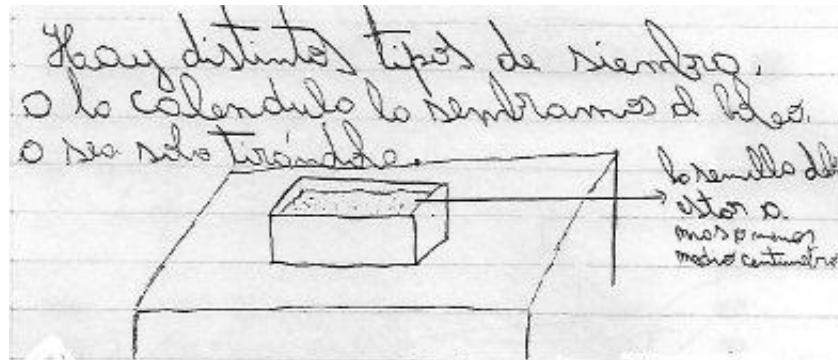 Hay distintos tipos de siembra.
A la calendula la sembramos al boleo,
o sea solo tirándola.
la semilla debe
estar a
mas o menos
medio centimetro